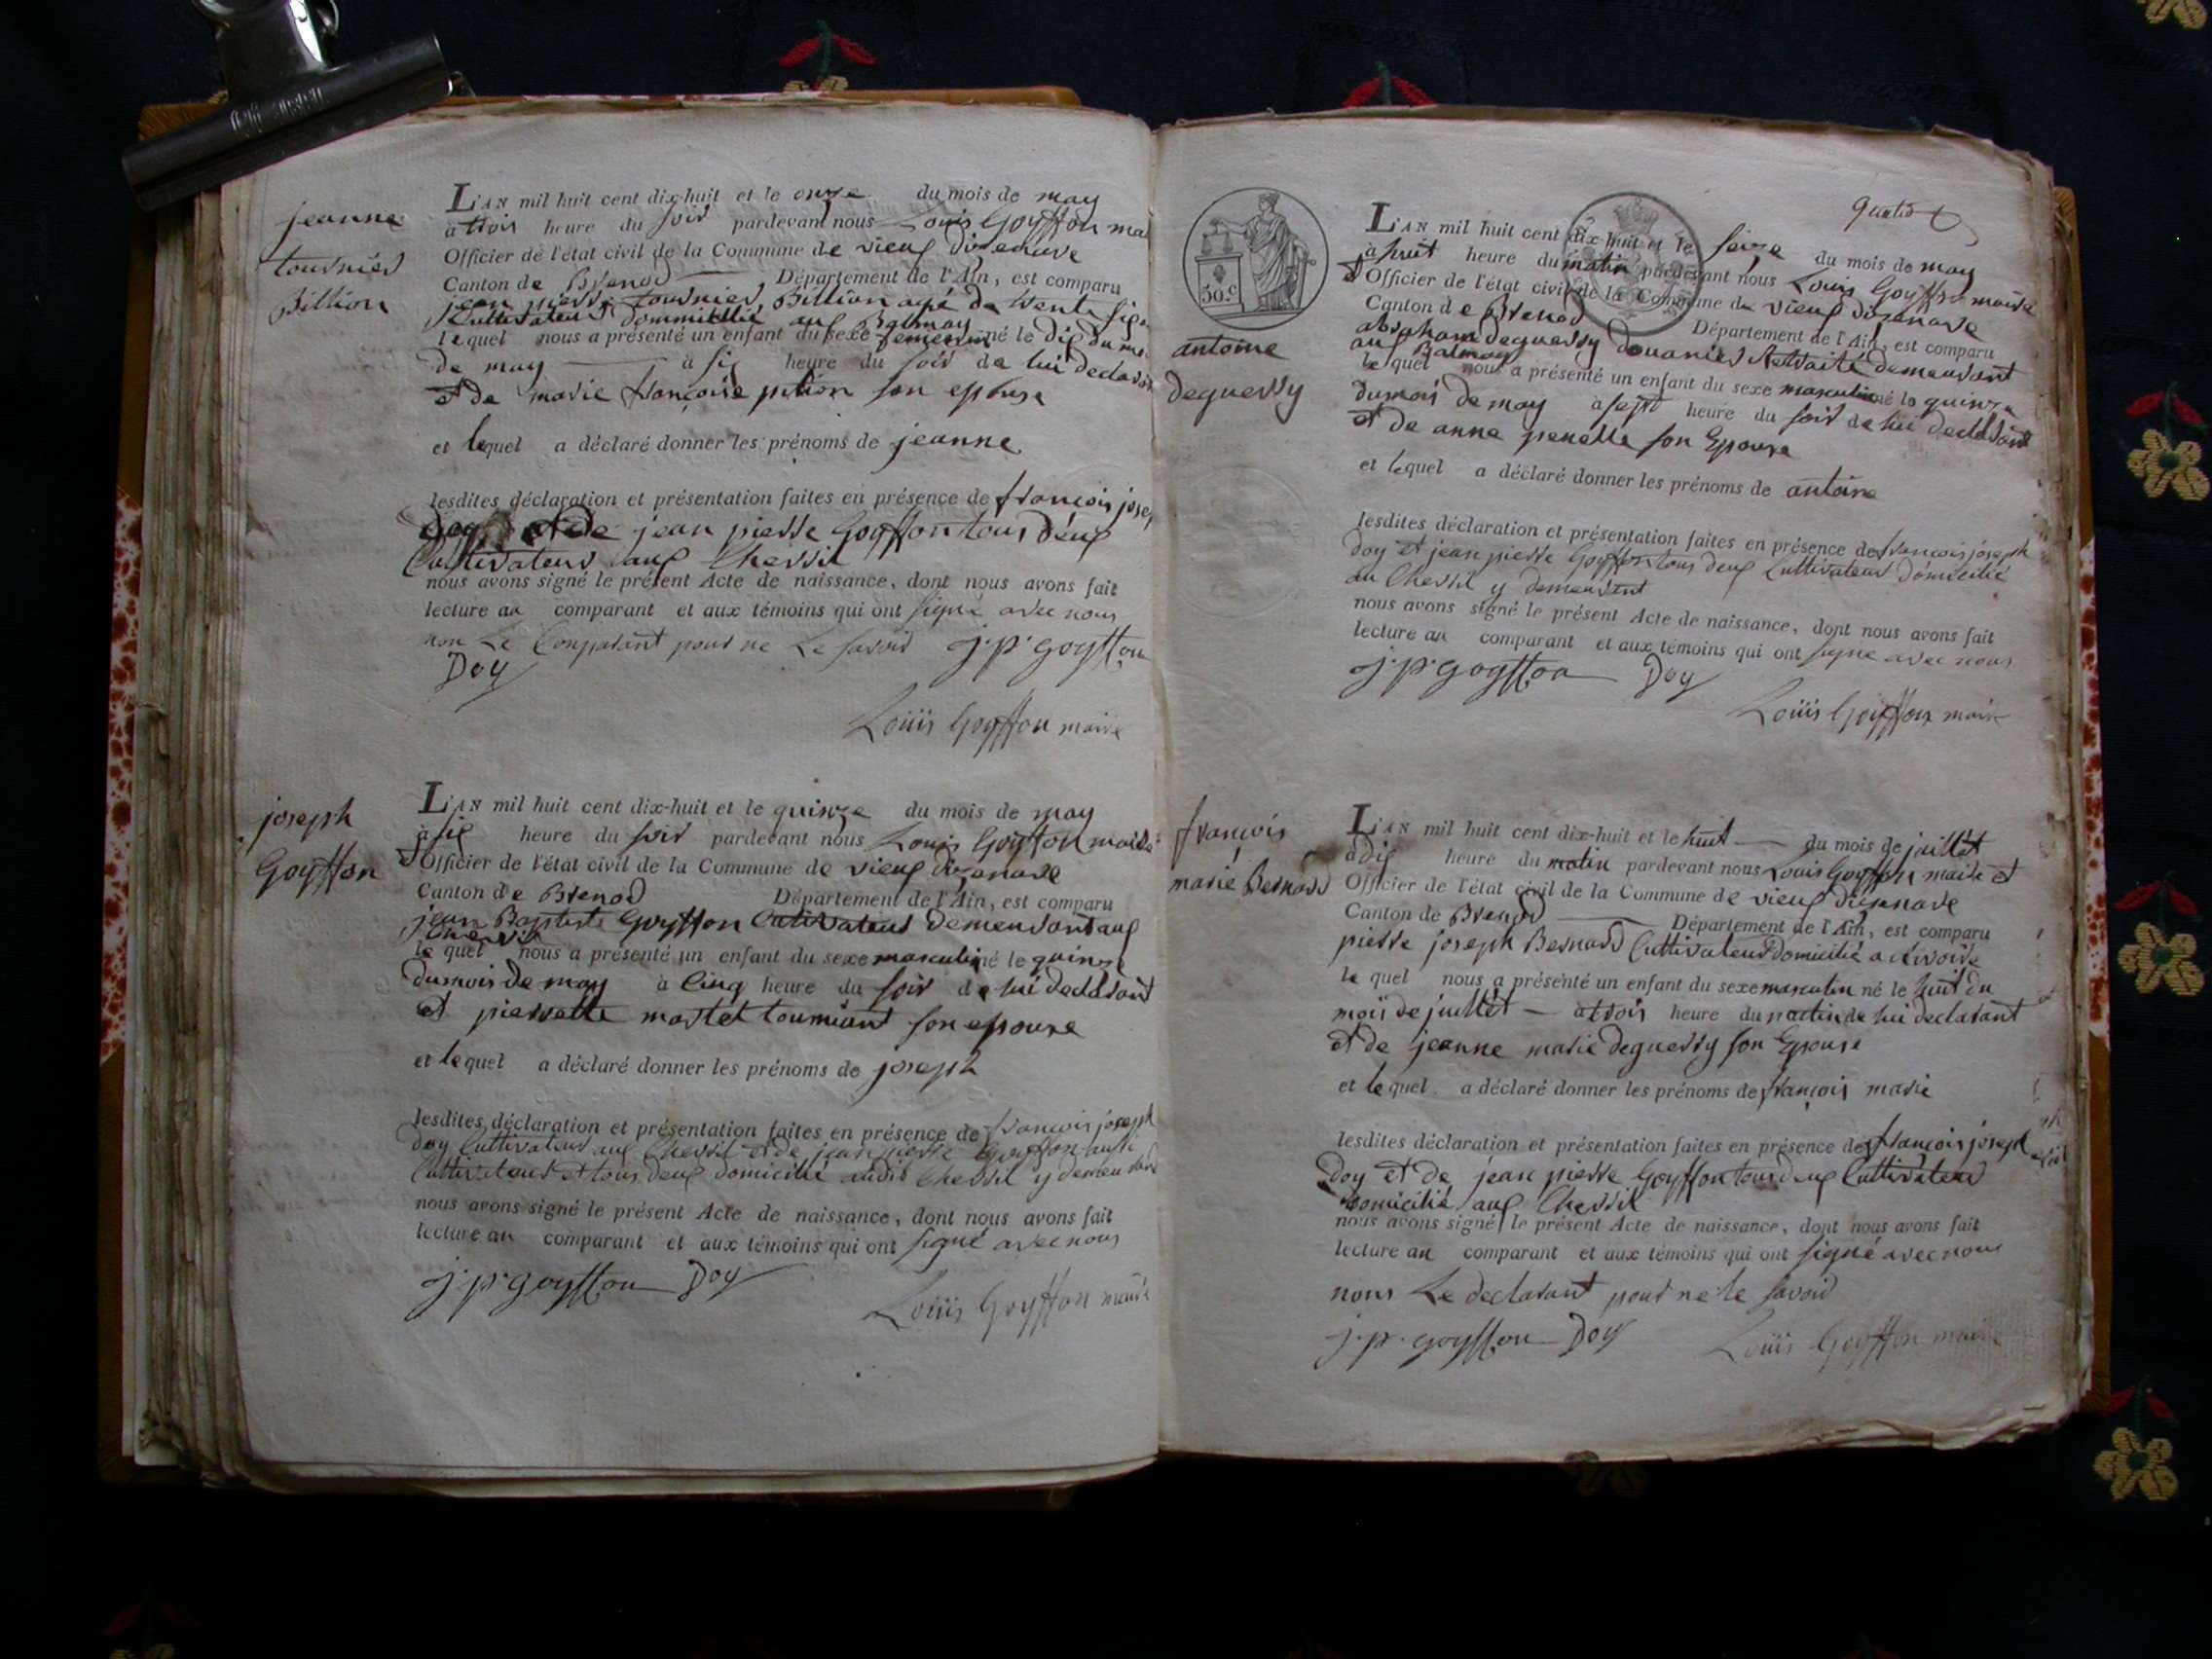 jeanne
tournier
Billion
L'AN mil huit cent dix-huit et le onze du mois de may
à trois heure du soir pardevant nous Louis Goyffon mai
Officier de l'état civil de la Commune de vieux dizenave
Canton de Brenod Département de l'Ain, est comparu
jean pierre tournier Billion agé de trente six
Cultivateur dommicillié aux Balmay
lequel nous a présenté un enfant du sexe femenin né le dix du mo
de may à six heure du soir de lui declarant
et de marie françoise pition son epouse
et lequel a déclaré donner les prénoms de jeanne
lesdites déclaration et présentation faites en présence de françois josep
doy et de jean pierre Goyffon tous deux
Cultivateur aux Chevril
nous avons signé le présent Acte de naissance, dont nous avons fait
lecture au comparant et aux témoins qui ont signé avec nous
non Le Comparant pour ne Le savoir j.p. goyffon
Doy
Loüis Goyffon maire
joseph
Goyffon
L'AN mil huit cent dix-huit et le quinze du mois de may
à six heure du soir pardevant nous Louis Goyffon maire
et Officier de l'état civil de la Commune de vieux dizenave
Canton de Brenod Département de l'Ain, est comparu
jean Baptiste Goyffon Cultivateur demeurant aux
Chevril
le quel nous a présenté un enfant du sexe masculin né le quinze
du mois de may à Cinq heure du soir de lui declarant
et pierrette martel toumiant son epouse
et le quel a déclaré donner les prénoms de joseph
lesdites déclaration et présentation faites en présence de françois joseph
doy Cultivateur aux Chevril et de jean pierre Goyffon aussi
Cultivateur et tous deux domicilié audit Chevril y demeurant
nous avons signé le présent Acte de naissance, dont nous avons fait
lecture au comparant et aux témoins qui ont signé avec nous
j.p. goyffon Doy
Loüis Goyffon maire
50.c
antoine
deguerry
L'AN mil huit cent dix-huit et le seize du mois de may
à huit heure du matin pardevant nous Louis Goyffon maire
et Officier de l'état civil de la Commune de vieux dizenave
Canton de Brenod Département de l'Ain, est comparu
abraham deguerry douanier Retraité demeurant
aux Balmay
le quel nous a présenté un enfant du sexe masculin né le quinze
du mois de may à sept heure du soir de lui declarant
et de anne penelle son Epouse
et lequel a déclaré donner les prénoms de antoine
lesdites déclaration et présentation faites en présence de françois joseph
doy et jean pierre Goyffon tous deux Cultivateur domicilié
au Chevril y demeurent
nous avons signé le présent Acte de naissance, dont nous avons fait
lecture au comparant et aux témoins qui ont signé avec nous
j.p. goyffon Doy
Loüis Goyffon maire
françois
marie Bernard
L'AN mil huit cent dix-huit et le huit du mois de juillet
à dix heure du matin pardevant nous Louis Goyffon maire et
Officier de l'état civil de la Commune de vieux dizenave
Canton de Brenod Département de l'Ain, est comparu
pierre joseph Bernard Cultivateur domicilié a
le quel nous a présenté un enfant du sexe masculin né le huit du
mois de juillet à trois heure du matin de lui declarant
et de jeanne marie deguerry son Epouse
et le quel a déclaré donner les prénoms de françois marie
lesdites déclaration et présentation faites en présence de françois joseph
doy et de jean pierre Goyffon tous deux Cultivateur
domicilié aux Chevril
nous avons signé le présent Acte de naissance, dont nous avons fait
lecture au comparant et aux témoins qui ont signé avec nous
nons Le declarant pour ne le savoir
j.p. goyffon Doy Loüis Goyffon maire